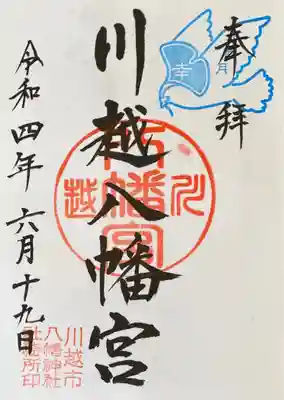 奉拝
幸
川越八幡宮
令和四年 六月十九日
川越市
八幡神社
社務所印